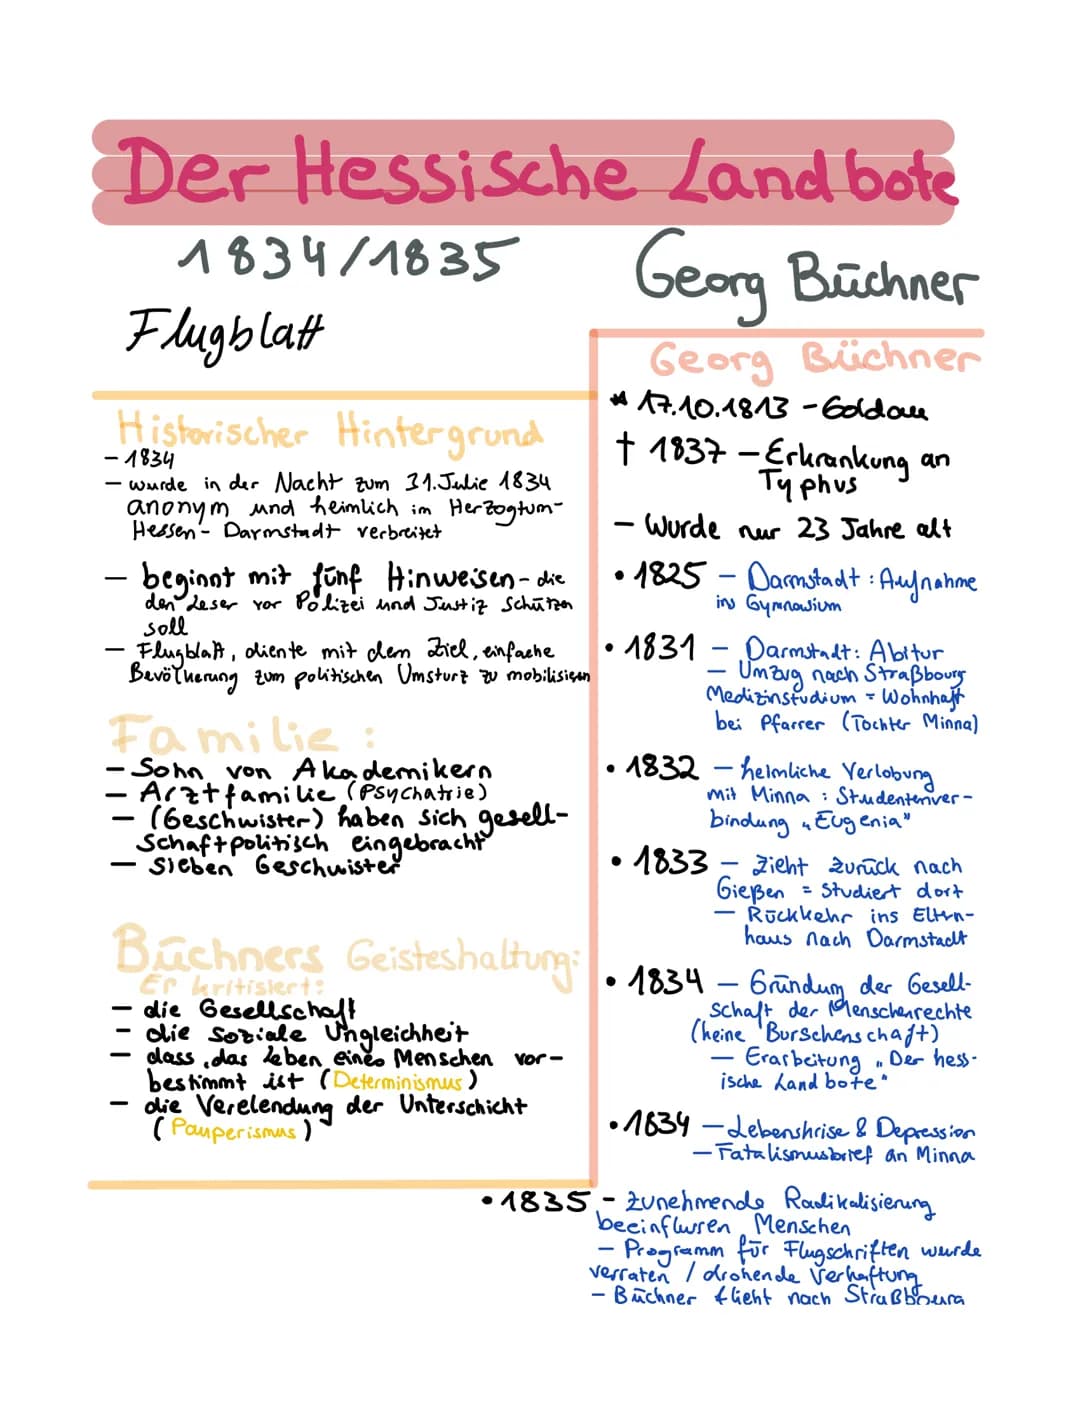 Der Hessische Landbote
1834/1835
Georg Büchner
Flugblatt
Historischer Hintergrund
- 1834
- wurde in der Nacht zum 31. Julie 1834
anonym und heimlich im Herzogtum-
Hessen- Darmstadt verbreitet
- beginnt mit fünf Hinweisen - die
den Leser vor Polizei und Justiz Schützen
soll
- Flugblatt, diente mit dem Ziel, einfache
Bevölkerung zum politischen Umsturz zu mobilisieren
Familie:
- Sohn von Akademikern
- Arztfamilie (Psychatrie)
- (Geschwister) haben sich gesell-
schaftpolitisch eingebracht
- Sieben Geschwister
Büchners Geisteshaltung:
Er kritisiert:
- die Gesellschaft
- die soziale Ungleichheit
- dass, das Leben eines Menschen vor-
bestimmt ist (Determinismus)
- die Verelendung der Unterschicht
(Pauperismus)
Georg Büchner
* 17.10.1813 - Goldau
† 1837 - Erkrankung an
Typhus
- Wurde nur 23 Jahre alt
• 1825 - Darmstadt: Aufnahme
ins Gymnasium
• 1831 - Darmstadt: Abitur
- Umzug nach Straßbourg
Medizinstudium = Wohnhaft
bei Pfarrer (Tochter Minna)
• 1832 - heimliche Verlobung
mit Minna : Studentenver-
bindung „Eugenia"
• 1833 - Zieht zurück nach
Gießen = studiert dort
- Rückkehr ins Eltern-
haus nach Darmstadt
• 1834 - Gründung der Gesell-
schaft der Menschenrechte
(keine Burschenschaft)
- Erarbeitung „Der hess-
ische Landbote"
• 1834 - Lebenskrise & Depression
- Fatalismusbrief an Minna
• 1835 - zunehmende Radikalisierung
beeinfluren Menschen
- Programm für Flugschriften wurde
verraten / drohende Verhaftung
- Büchner flieht nach Straßbourg